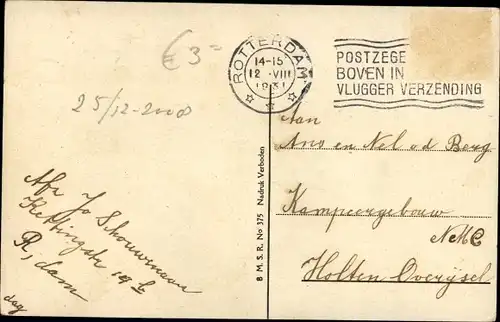 € 3=
25/12-2008
ROTTERDAM
14-15
12 VIII
1931
POSTZEGE
BOVEN IN
VLUGGER VERZENDING
Aan
Ans en Nel v d Berg
Kampeergebouw
NeMC
Holten Overijsel
8 M. S. R. No 375 Nadruk Verboden
Afz Jo Schouwenaar
Kettingstr 19
R,dam
dag